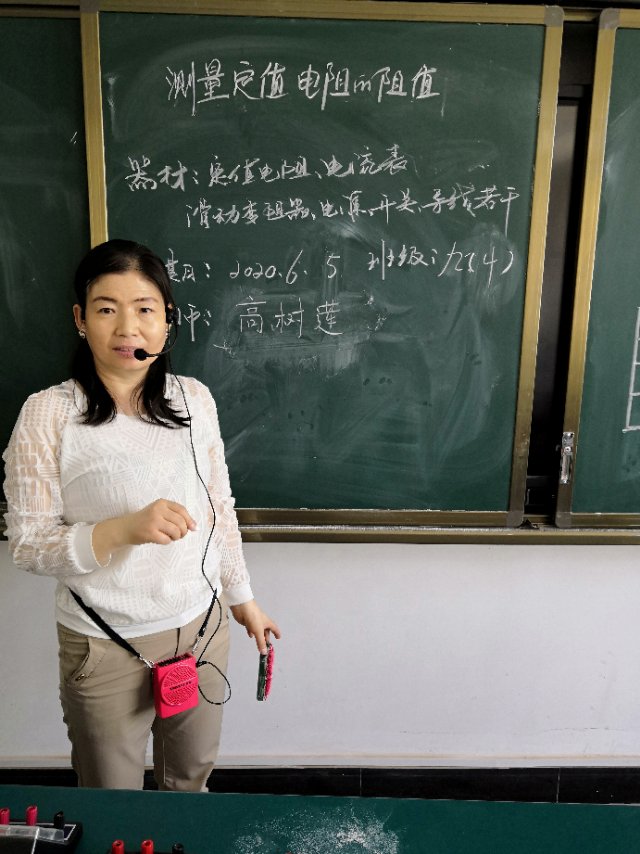 测量定值电阻的阻值
器材：定值电阻、电流表
滑动变阻器、电源、开关、导线若干
期：2020.6.5 班级：九(4)
师：高树莲